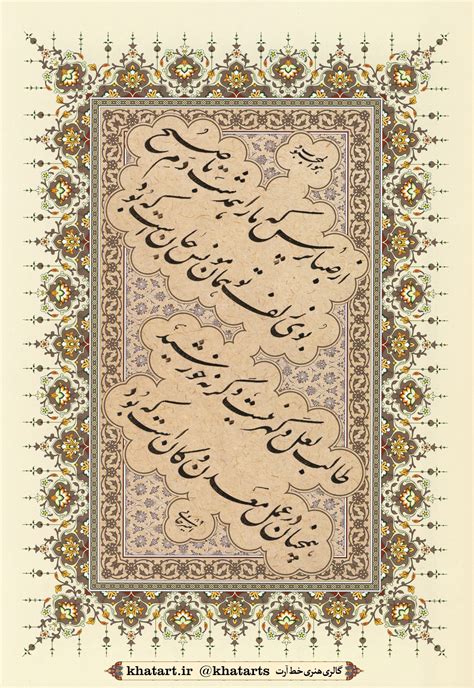 هوالمحبوب
از صبا پرس که ما را همه شب تا دم صبح
بوی زلف تو همان مونس جان است که بود
طالب لعل و گهر نیست وگرنه خورشید
همچنان در عمل معدن و کان است که بود
khatart.ir @khatarts گالری هنری خط آرت